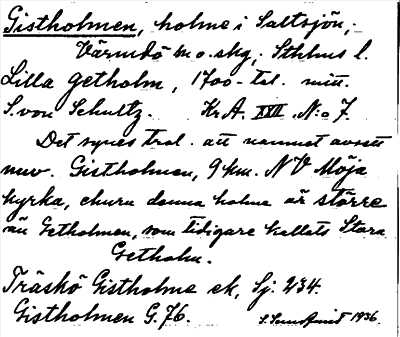 Gistholmen, holme i Saltsjön,
Värmdö m. o. skg, Sthlms l.
Lilla Getholm, 1700-tal. mitt.
S. von Schultz. Kr. A. XXII N:o 7.
Det synes trol. att namnet avsett
nuv. Gistholmen, 9 km. NV Möja
kyrka, churu denna holme är större
än Getholmen, som tidigare kallats Stora
Getholm.
Träskö Gistholme ek, Sj. 234.
Gistholmen G. 76. 1936.